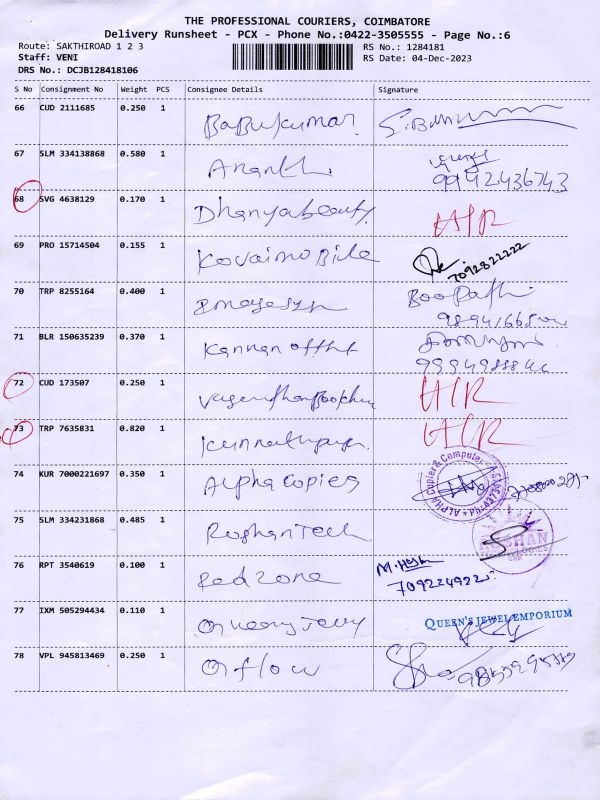 THE PROFESSIONAL COURIERS, COIMBATORE
Delivery Runsheet - PCX - Phone No.:0422-3505555 - Page No.:6
Route: SAKTHIROAD 1 2 3
RS No.: 1284181
Staff: VENI
RS Date: 04-Dec-2023
DRS No.: DCJB128418106
S No Consignment No Weight PCS Consignee Details Signature
66 CUD 2111685 0.250 1 Babukumar S.Bam
67 SLM 334138868 0.580 1 Ananth.
9942436743
68 SVG 4638129 0.170 1 Dhanyabeauty HIR
69 PRO 15714504 0.155 1 Kovaimobile
7092822222
70 TRP 8255164 0.400 1 Boopathi
71 BLR 150635239 0.370 1 Kannan
72 CUD 173507 0.250 1 HIR
73 TRP 7635831 0.820 1 HIR
74 KUR 7000221697 0.350 1 Alphacopies
ALPHA Copier & Computer
75 SLM 334231868 0.485 1 RoshanTech
ROSHAN
TECHNOLOGIES
CBE
76 RPT 3540619 0.100 1 Redzone
77 IXM 505294434 0.110 1 QUEEN'S JEWEL EMPORIUM
78 VPL 945813469 0.250 1 Orflow